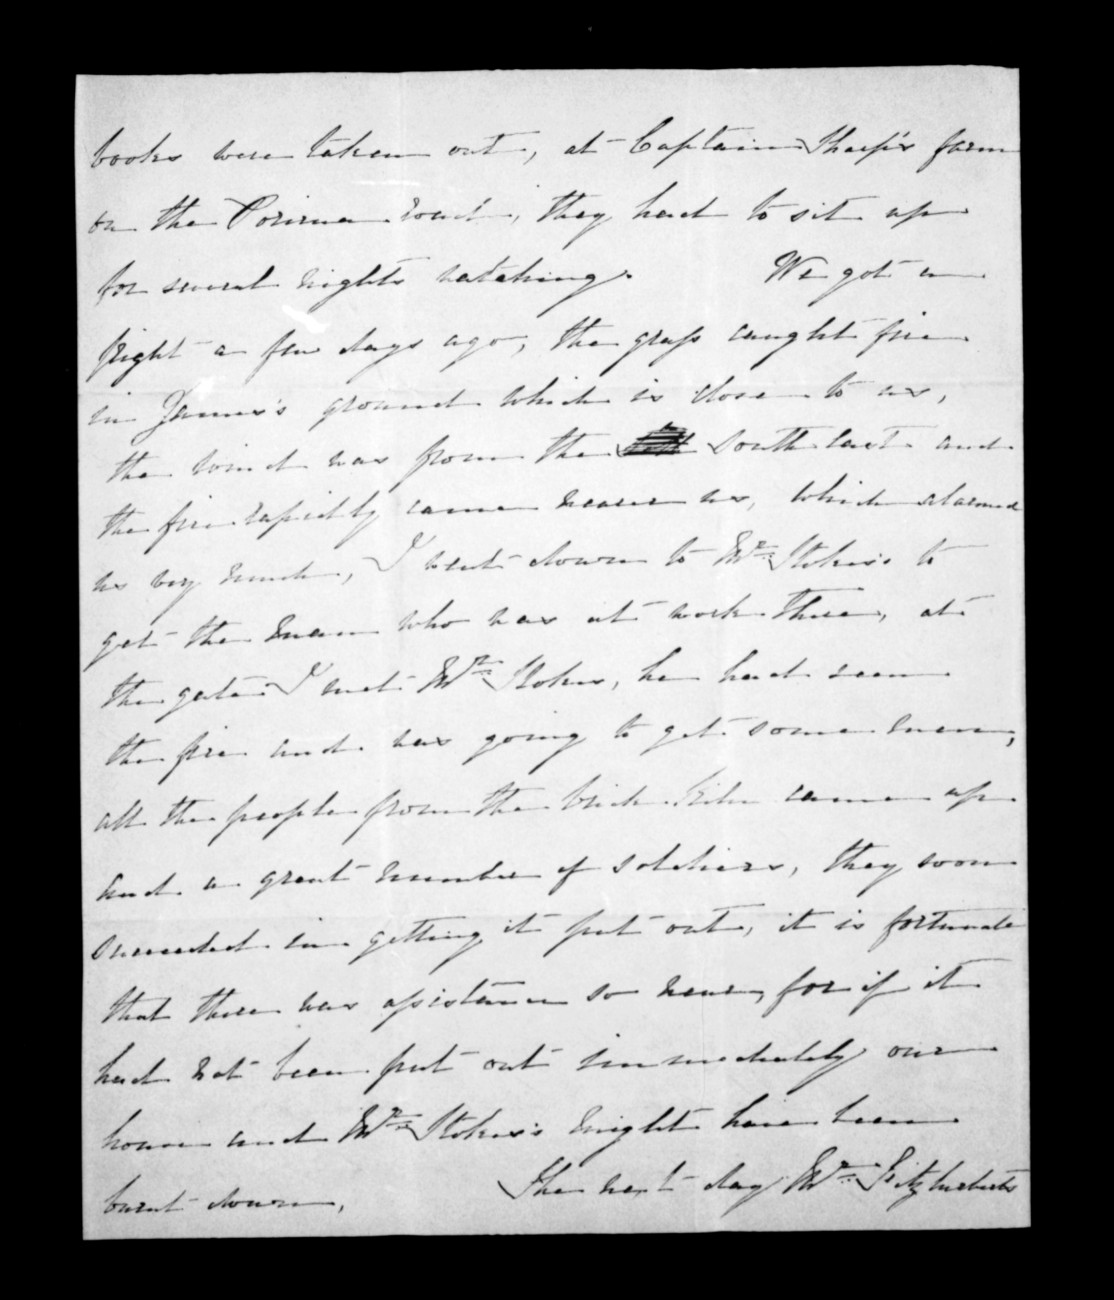 books were taken out, at Captain Sharp's farm
on the Porirua road, they had to sit up
for several nights watching. We got a
fright a few days ago, the grass caught fire
in James's ground which is close to us,
the wind was from the South East and
the fire rapidly came nearer us, which alarmed
us very much, I went down to Mr Stokes's to
get the man who was at work there, at
the gate I met Mr Stokes, he had seen
the fire and was going to get some men,
all the people from the brick kiln came up
and a great number of soldiers, they soon
succeeded in getting it put out, it is fortunate
that there was assistance so near, for if it
had not been put out immediately our
house and Mr Stokes's might have been
burnt down. The next day Mr Fitzherberts